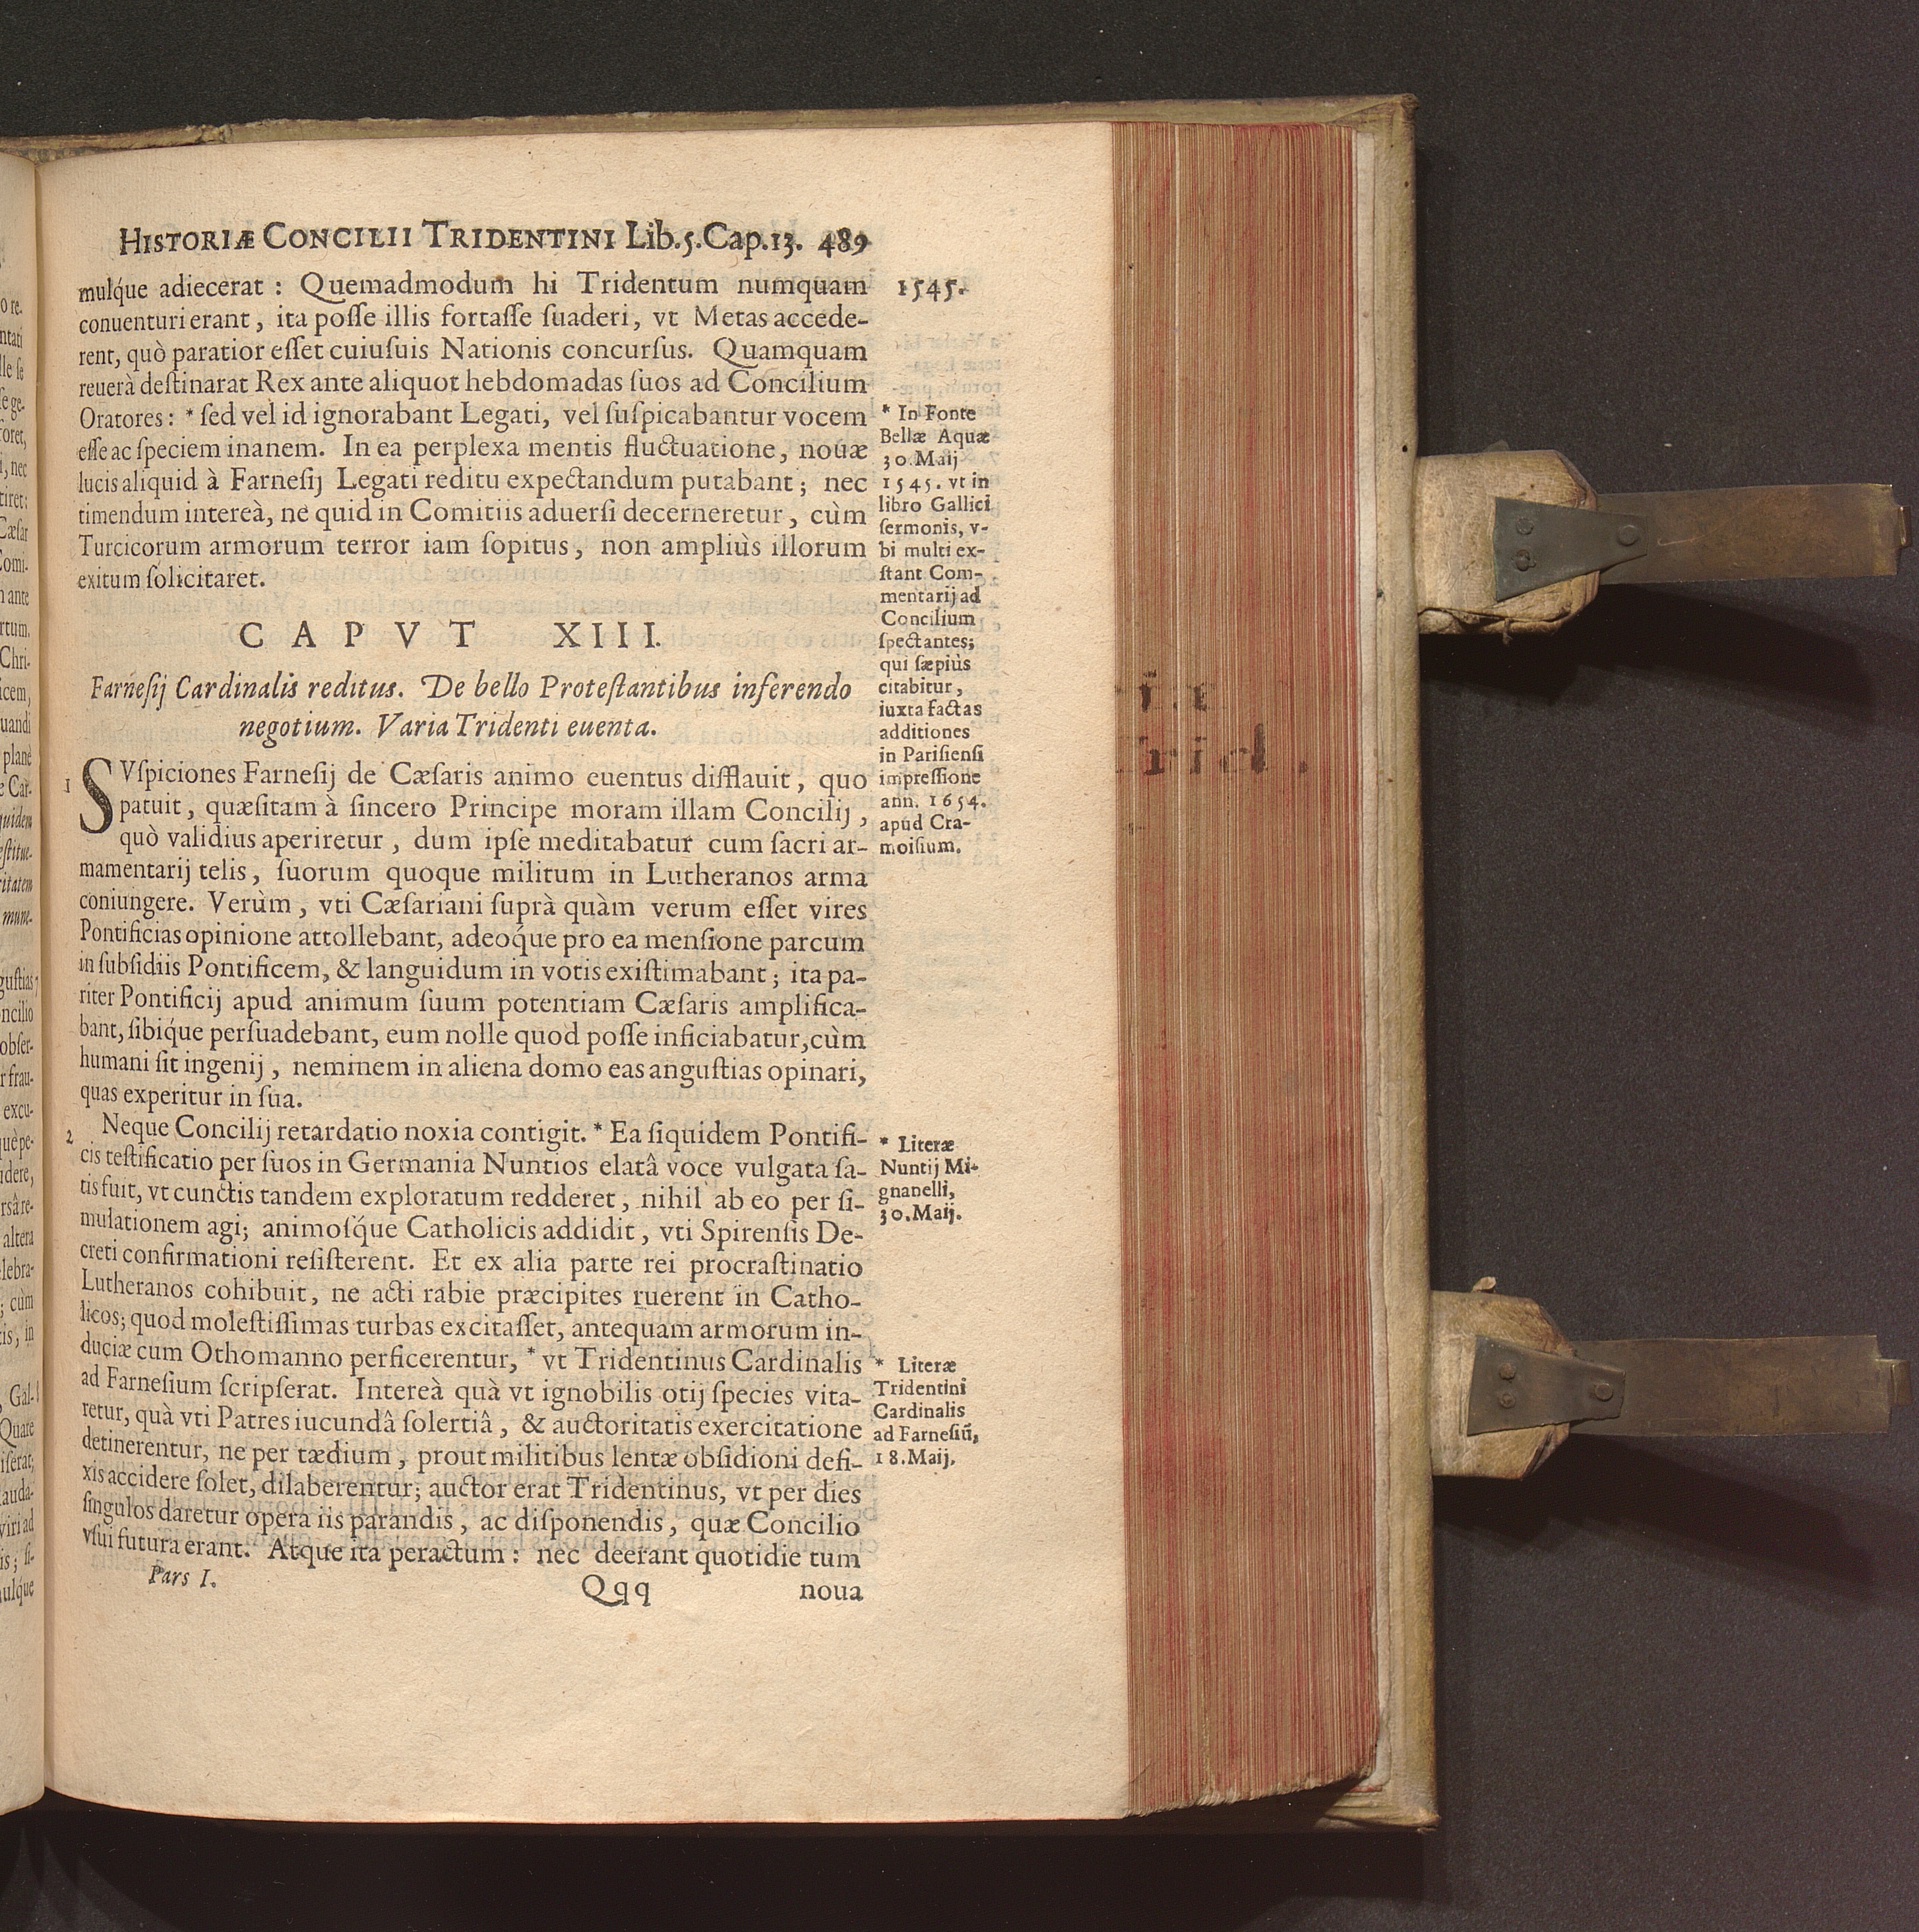 HISTORIÆ CONCILII TRIDENTINI Lib.5.Cap.13. 489
mulq́ue adiecerat : Quemadmodum hi Tridentum numquam
conuenturi erant, ita poſſe illis fortaſſe ſuaderi, vt Metas accede-
rent, quò paratior eſſet cuiuſuis Nationis concurſus. Quamquam
reuerà deſtinarat Rex ante aliquot hebdomadas ſuos ad Concilium
Oratores : * ſed vel id ignorabant Legati, vel ſuſpicabantur vocem
eſſe ac ſpeciem inanem. In ea perplexa mentis fluctuatione, nouæ
lucis aliquid à Farneſij Legati reditu expectandum putabant ; nec
timendum intereà, ne quid in Comitiis aduerſi decerneretur, cùm
Turcicorum armorum terror iam ſopitus, non ampliùs illorum
exitum ſolicitaret.
1545.
* In Fonte
Bellæ Aquæ
30. Maij
1545. vt in
libro Gallici
ſermonis, v-
bi multi ex-
ſtant Com-
mentarij ad
Concilium
ſpectantes;
qui ſæpiùs
citabitur,
iuxta factas
additiones
in Pariſienſi
impreſſione
ann. 1654.
apud Cra-
moiſium.
CAPVT XIII.
Farneſij Cardinalis reditus. De bello Proteſtantibus inferendo
negotium. Varia Tridenti euenta.
1 SVſpiciones Farneſij de Cæſaris animo euentus difflauit, quo
patuit, quæſitam à ſincero Principe moram illam Concilij,
quò validius aperiretur, dum ipſe meditabatur cum ſacri ar-
mamentarij telis, ſuorum quoque militum in Lutheranos arma
coniungere. Verùm, vti Cæſariani ſuprà quàm verum eſſet vires
Pontificias opinione attollebant, adeoq́ue pro ea menſione parcum
in ſubſidiis Pontificem, & languidum in votis exiſtimabant ; ita pa-
riter Pontificij apud animum ſuum potentiam Cæſaris amplifica-
bant, ſibiq́ue perſuadebant, eum nolle quod poſſe inficiabatur, cùm
humani ſit ingenij, neminem in aliena domo eas anguſtias opinari,
quas experitur in ſua.
2 Neque Concilij retardatio noxia contigit. * Ea ſiquidem Pontifi-
cis teſtificatio per ſuos in Germania Nuntios elatâ voce vulgata ſa-
tis fuit, vt cunctis tandem exploratum redderet, nihil ab eo per ſi-
mulationem agi; animoſq́ue Catholicis addidit, vti Spirenſis De-
creti confirmationi reſiſterent. Et ex alia parte rei procraſtinatio
Lutheranos cohibuit, ne acti rabie præcipites ruerent in Catho-
licos; quod moleſtiſſimas turbas excitaſſet, antequam armorum in-
duciæ cum Othomanno perficerentur, * vt Tridentinus Cardinalis
ad Farneſium ſcripſerat. Intereà quà vt ignobilis otij ſpecies vita-
retur, quà vti Patres iucundâ ſolertiâ, & auctoritatis exercitatione
detinerentur, ne per tædium, prout militibus lentæ obſidioni defi-
xis accidere ſolet, dilaberentur; auctor erat Tridentinus, vt per dies
ſingulos daretur opera iis parandis, ac diſponendis, quæ Concilio
vſui futura erant. Atque ita peractum : nec deerant quotidie tum
* Literæ
Nuntij Mi-
gnanelli,
30. Maij.
* Literæ
Tridentini
Cardinalis
ad Farneſiũ,
18. Maij.
Pars I. Qqq noua